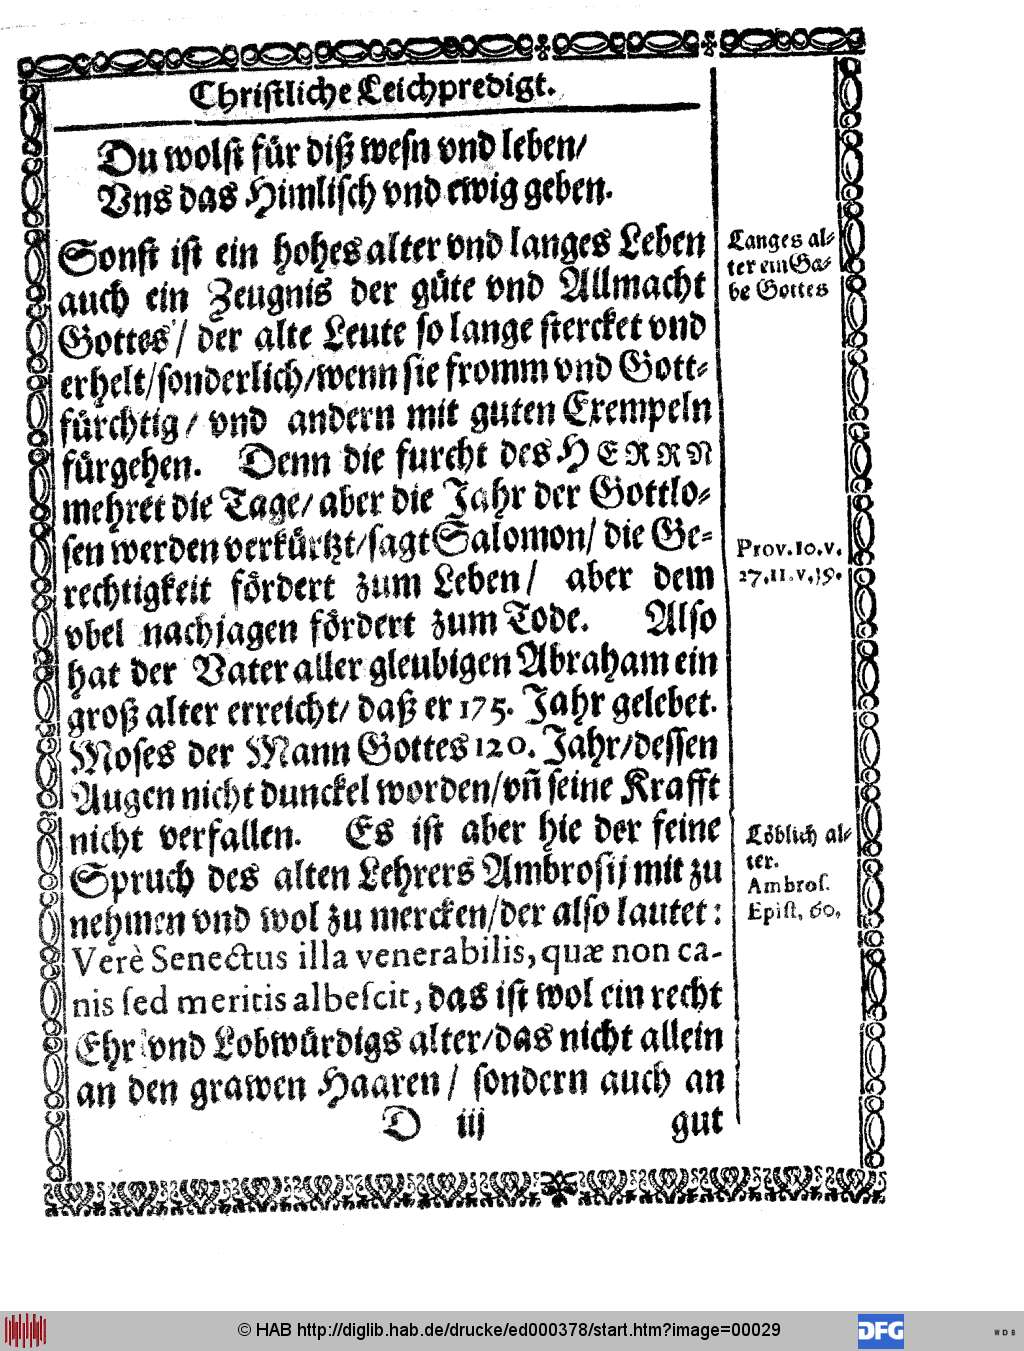 Christliche Leichpredigt.
Du wolst für diß wesn vnd leben/
Vns das Himlisch vnd ewig geben.
Sonst ist ein hohes alter vnd langes Leben
auch ein Zeugnis der güte vnd Allmacht
Gottes/ der alte Leute so lange stercket vnd
erhelt/sonderlich/wenn sie fromm vnd Gott-
fürchtig/ vnd andern mit guten Exempeln
fürgehen. Denn die furcht des HERRN
mehret die Tage/ aber die Jahr der Gottlo-
sen werden verkürtzt/sagt Salomon/ die Ge-
rechtigkeit fördert zum Leben/ aber dem
vbel nachjagen fördert zum Tode. Also
hat der Vater aller gleubigen Abraham ein
groß alter erreicht/ daß er 175. Jahr gelebet.
Moses der Mann Gottes 120. Jahr/dessen
Augen nicht dunckel worden/vñ seine Krafft
nicht verfallen. Es ist aber hie der feine
Spruch des alten Lehrers Ambrosij mit zu
nehmen vnd wol zu mercken/der also lautet:
Verè Senectus illa venerabilis, quæ non ca-
nis sed meritis albescit, das ist wol ein recht
Ehr vnd Lobwürdigs alter/das nicht allein
an den grawen Haaren/ sondern auch an
D iij gut
Langes al-
ter ein Ga-
be Gottes
Prov. 10. v.
27. 11. v. 19.
Löblich al-
ter.
Ambros.
Epist. 60.
© HAB http://diglib.hab.de/drucke/ed000378/start.htm?image=00029
DFG
WDB